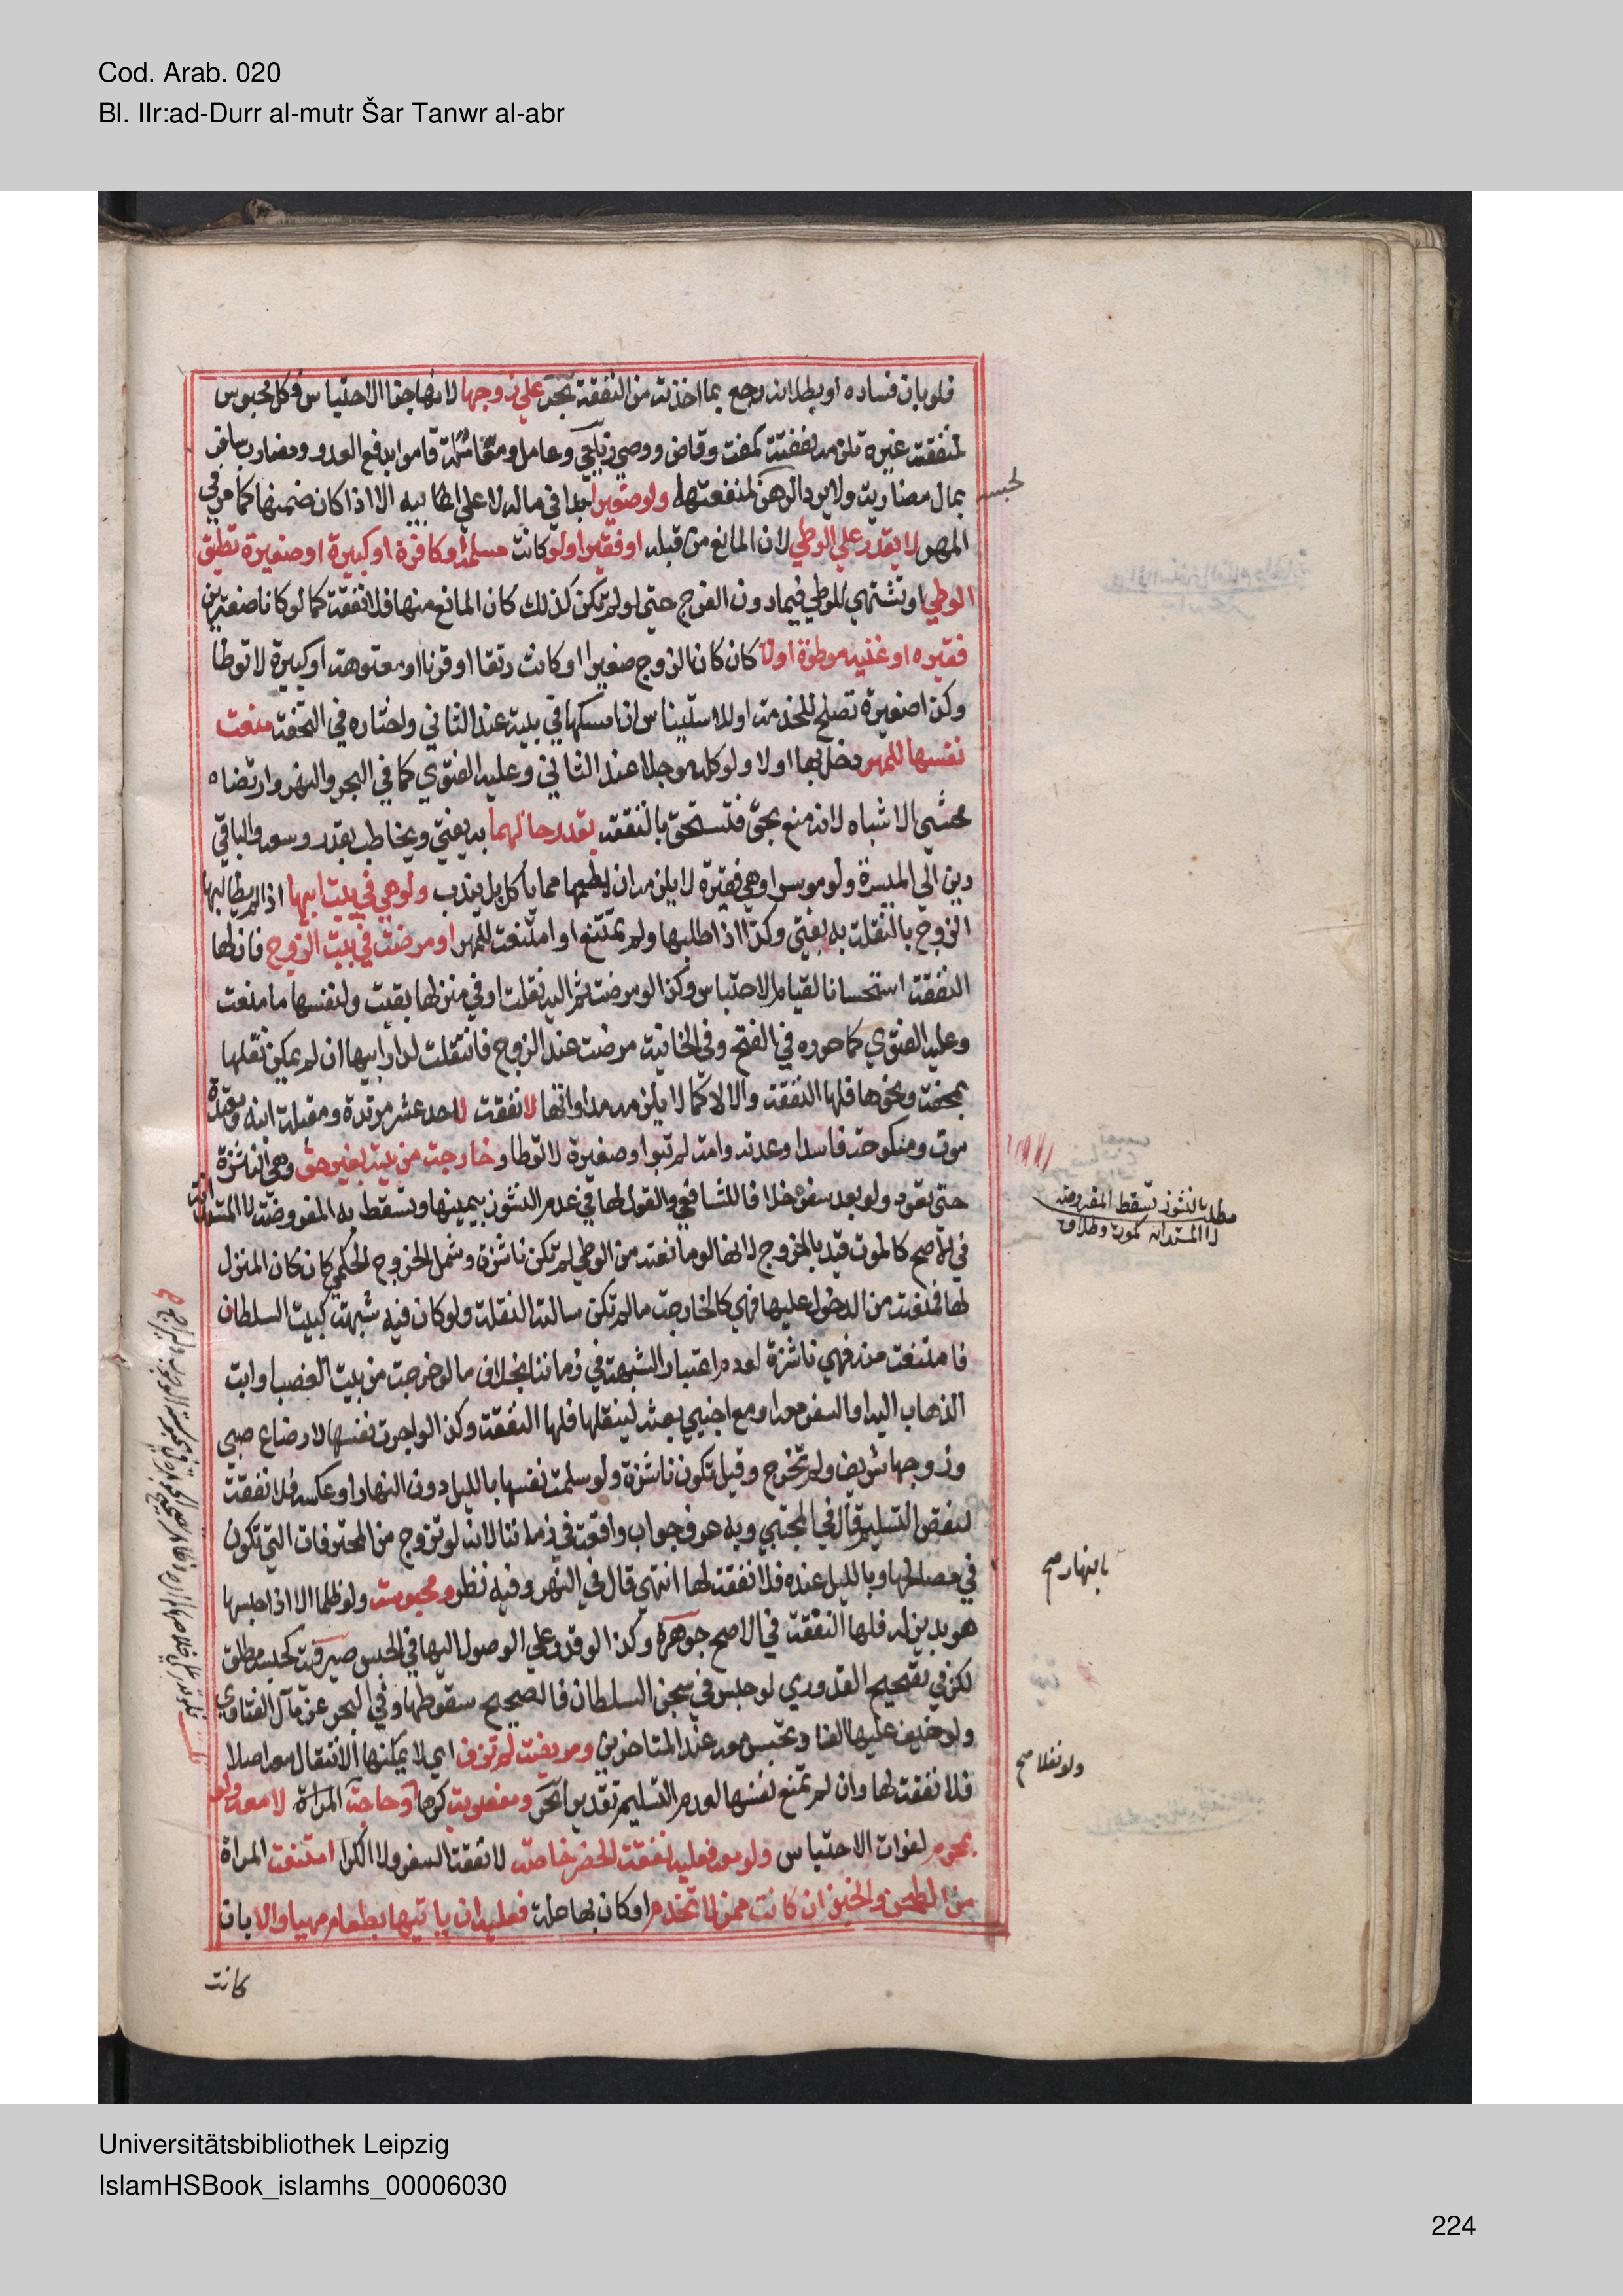 Cod. Arab. 020
Bl. IIr:ad-Durr al-mutr Šar Tanwr al-abr
فلو بان فساده او بطلانه رجع بما اخذته من النفقة بحر علي زوجها لانها جزا الاحتباس وكل محبوس
لمنفعة غيره تلزمه نفقته كمفت وقاض ووصي زيلعي وعامل ومقاتلة قاموا بدفع العدو ومضارب سافر
بمال مضاربة ولا يرد الرهن لمنفعتهما ولو صغيرا جدا في ماله لا علي ابيه الا اذا كان ضمنها كما مر في
المهر لا يقدر علي الوطي لان المانع من قبله او فقيرا ولو كانت مسلمة او كافرة او كبيرة او صغيرة تطيق
الوطي او تشتهي للوطي فيما دون الفرج حتي لو لم يكن كذلك كان المانع منها فلا نفقة كما لو كانا صغيرين
فقيره او غنيه موطوة او لا كان كان الزوج صغيرا او كانت رتقا او قرنا او معتوهة او كبيرة لا توطا
وكذا صغيرة تصلح للخدمة او للاستيناس ان امسكها في بيته عند الثاني واختاره في التحفة منعت
نفسها للمهر دخل بها او لا ولو كله موجلا عند الثاني وعليه الفتوي كما في البحر والنهر وارتضاه
محشي الاشباه لانه منع بحق فتستحق النفقة بقدر حالهما به يفتي ويخاطب بقدر وسعه والباقي
دين الي الميسرة ولو موسرا وهي فقيرة لا يلزمه ان يطعمها مما ياكل بل يندب ولو هي في بيت ابيها اذا لم يطالبها
الزوج بالنقلة به يفتي وكذا اذا طلبها ولم تمتنع او امتنعت للمهر او مرضت في بيت الزوج فان لها
النفقة استحسانا لقيام الاحتباس وكذا لو مرضت ثم اليه نقلت او في منزلها بقيت ولنفسها ما منعت
وعليه الفتوي كما حرره في الفتح وفي الخانية مرضت عند الزوج فانتقلت لدار ابيها ان لم يمكن نقلها
بمحفة ونحوها فلها النفقة والا لا كما لا يلزمه مداواتها لا نفقة لاحد عشر مرتدة ومقبلة ابنه ومعتدة
موت ومنكوحة فاسدا وعدته وامة لم تبوا وصغيرة لا توطا وخارجة من بيته بغير حق وهي الناشزة
حتي تعود ولو بعد سفره خلافا للشافعي والقول لها في عدم النشوز بيمينها وتسقط به المفروضة لا المستدانة
في الاصح كالموت قيد بالخروج لانها لو مانعته من الوطي لم تكن ناشزة وشمل الخروج الحكمي كان كان المنزل
لها فمنعته من الدخول عليها فهي كالخارجة ما لم تكن سالته النقلة ولو كان فيه شبهة كبيت السلطان
فامتنعت منه فهي ناشزة لعدم اعتبار الشبهة في زماننا بخلاف ما لو خرجت من بيت الغصب او ابت
الذهاب اليه او السفر معه او مع اجنبي بعثه لينقلها فلها النفقة وكذا لو اجرت نفسها لارضاع صبي
وزوجها شريف ولم تخرج وقيل تكون ناشزة ولو سلمت نفسها بالليل دون النهار او عكسه فلا نفقة
لنقص التسليم قال في المجتبي وبه عرف جواب واقعة في زماننا انه لو تزوج من المحترفات التي تكون
في مصالحها وبالليل عنده فلا نفقة لها انتهي قال في النهر وفيه نظر ومحبوسة ولو ظلما الا اذا حبسها
هو بدين له فلها النفقة في الاصح جوهره وكذا لو قدر علي الوصول اليها في الحبس صيرفية كحبسه مطلق
لكن في تصحيح القدوري لو حبس في سجن السلطان فالصحيح سقوطها وفي البحر عن مال الفتاوي
ولو خيف عليها الفساد تحبس معه عند المتاخرين ومريضة لم تزف اي لا يمكنها الانتقال معه اصلا
فلا نفقة لها وان لم تمنع نفسها لعدم التسليم تقديرا بحر ومغصوبة كرها وحاجة المراة لا معه ولو
بمحرم لفوات الاحتباس ولو معه فعليه نفقة الحضر خاصة لا نفقة السفر ولا الكرا امتنعت المراة
من الطحن والخبز ان كانت ممن لا تخدم او كان بها علة فعليه ان ياتيها بطعام مهيا والا بان
كانت
لحبسه
مطلب بالنشوز تسقط المفروضة
لا المستدانة كموت وطلاق
بالنهار صح
ولو نفلا صح
Universitätsbibliothek Leipzig
IslamHSBook_islamhs_00006030
224